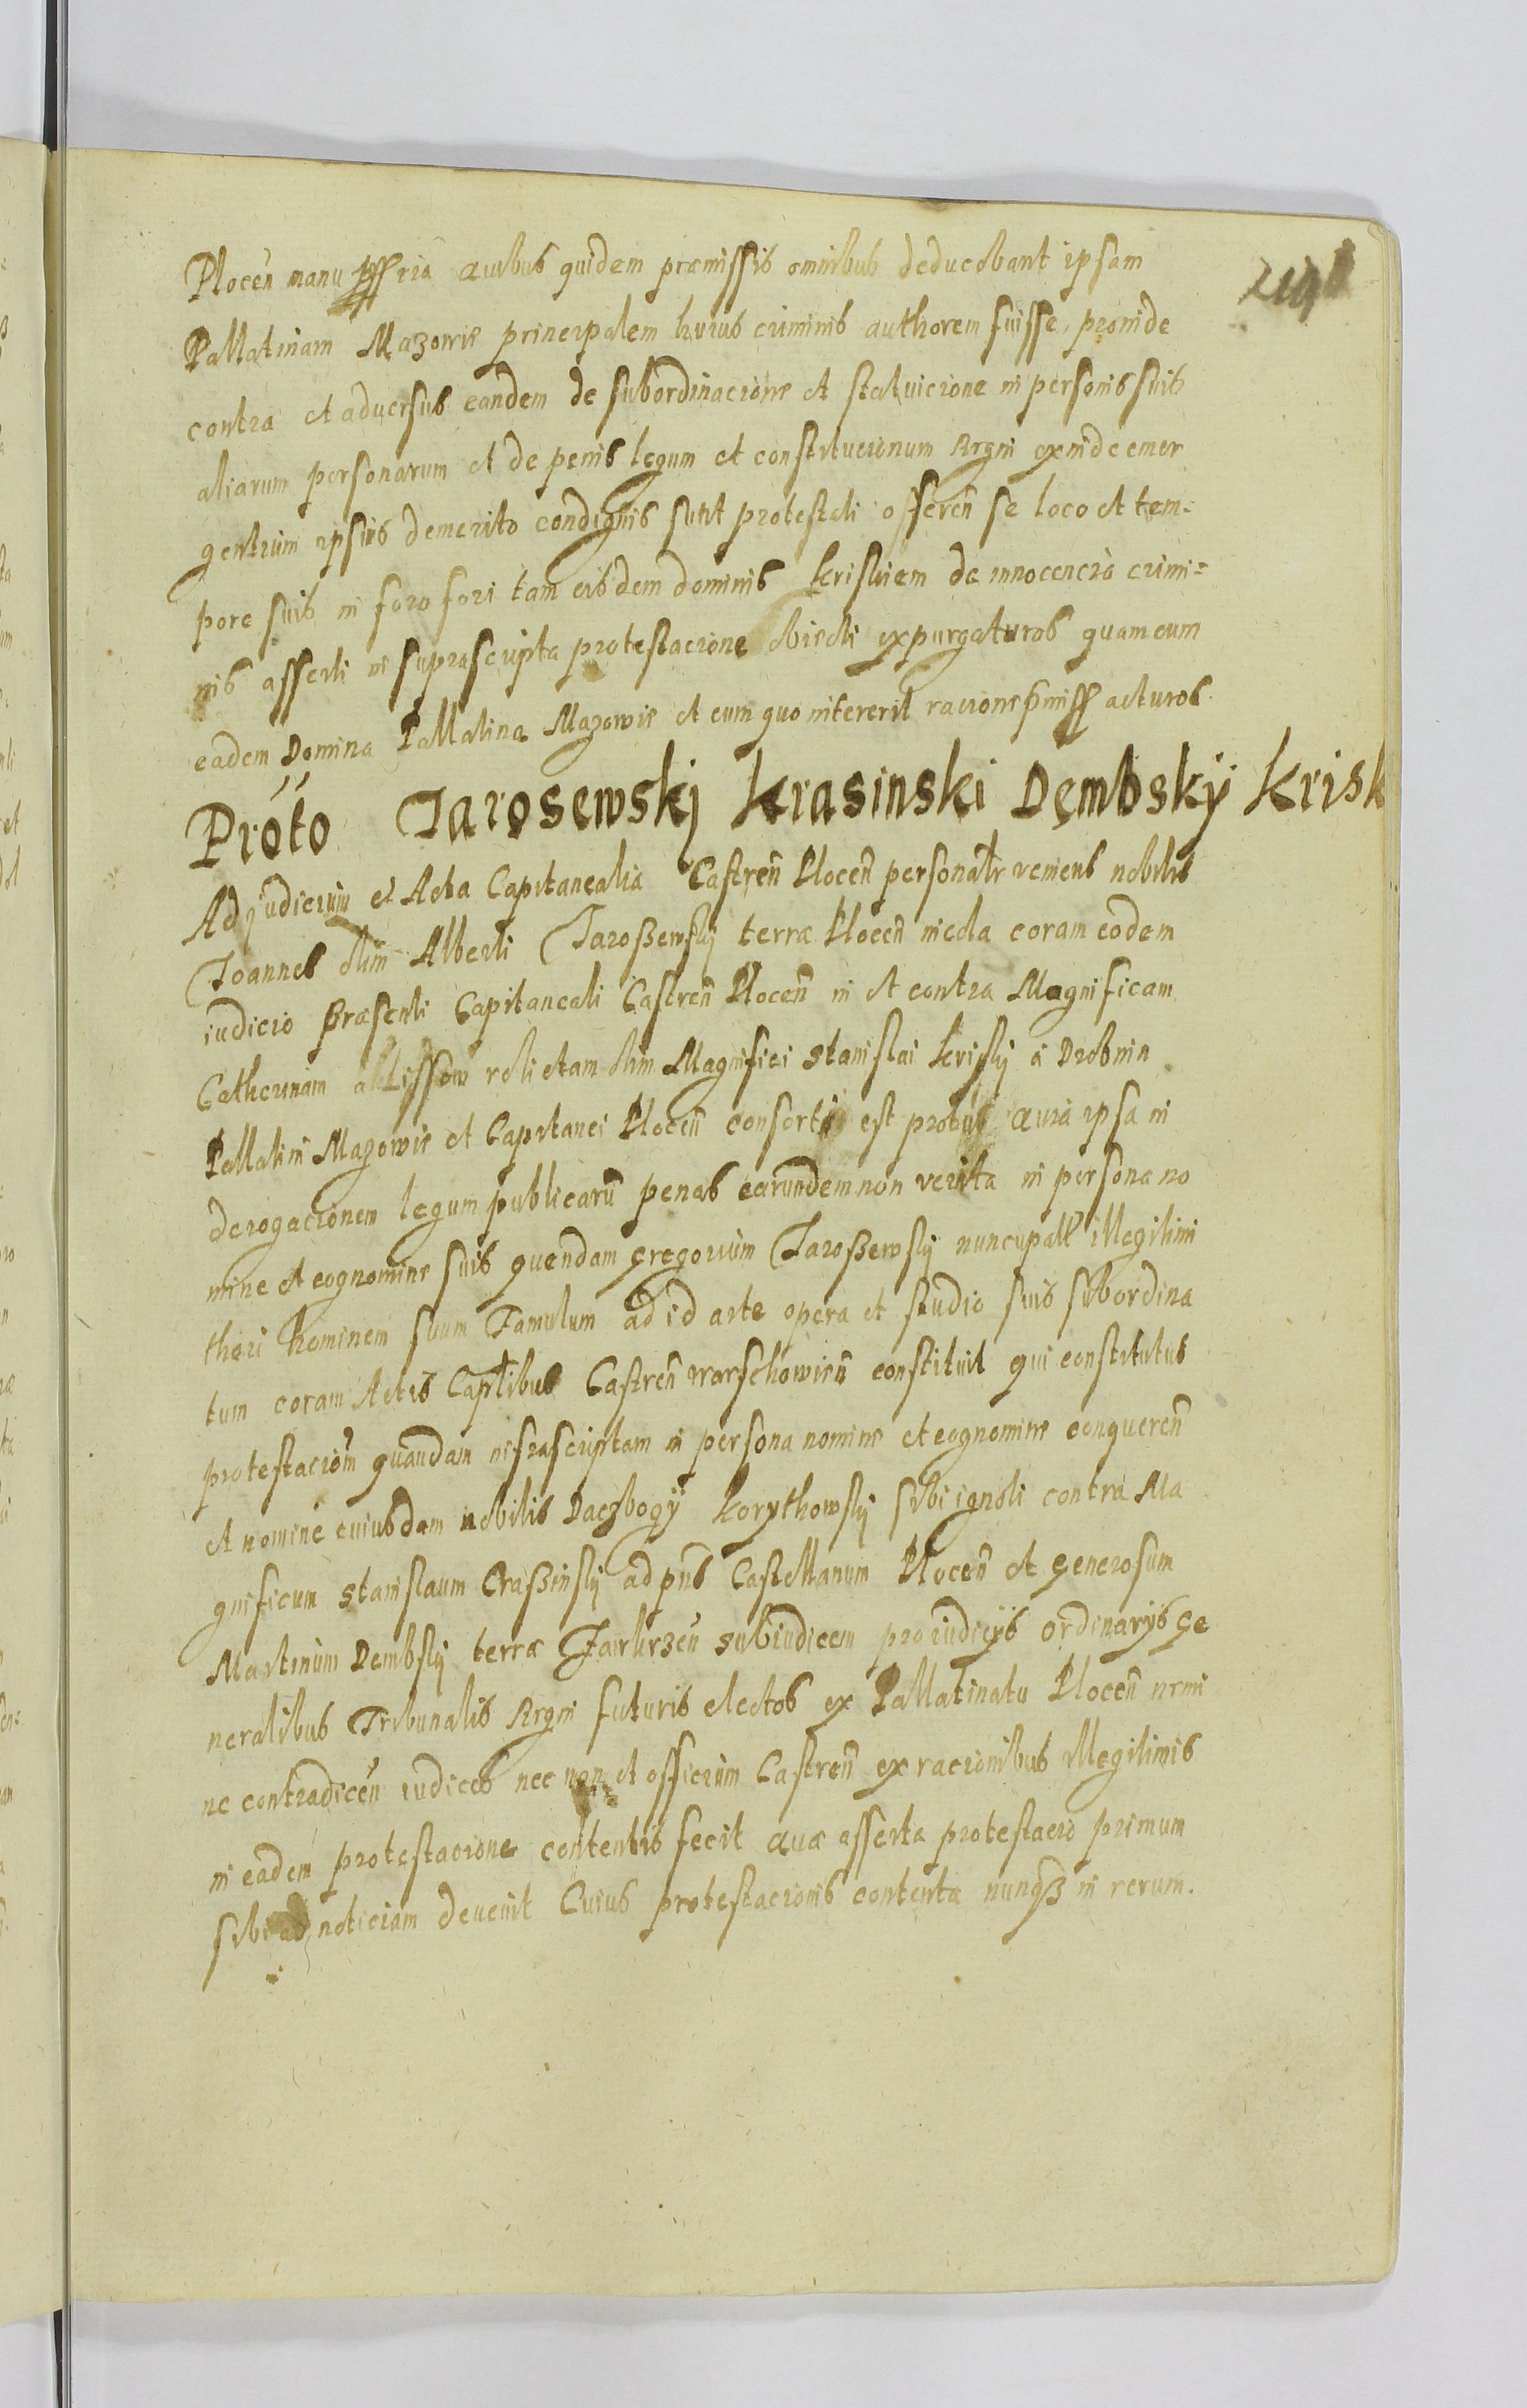 Plocen̄ manu ppria Quibus quidem præmissis omnibus deducebant ipsam
Pallatinam Mazowie principalem huius criminis authorem fuisse, proinde
contra et aduersus eandem de subordinacione et statuicione in personis suis
aliarum personarum et de penis legum et constitucionum Regni exinde emer
gentium ipsius demerito condignis sunt protestati offeren̄ se loco et tem=
pore suis in foro fori tam eisdem dominis Kriskiem de innocencia crimi=
nis asserti in suprascripta protestacione obiecti expurgaturos quam cum
eadem Domina Pallatina Mazowie et cum quo intererit racione p̄miss acturos
Proto Jarosewskj Krasinski Dembskÿ Krisk
Ad judicium et Acta Capitanealia Castren̄ Plocen̄ personalr veniens nobilis
Joannes olim Alberti Jaroßewskj terræ Plocen̄ incola coram eodem
iudicio præsenti Capitaneali Castren̄ Plocen̄ in et contra Magnificam
Catherinam relictam olim Magnifici Stanislai Kriskj a Drobnin
Pallatini Mazowie et Capitanei Plocen̄ consortē est protus Quia ipsa in
derogacionem legum publicarū penas earundem non verita in persona no
mine et cognomine suis quendam Gregorium Jaroßewskj nuncupatt illegitimi
thori hominem suum Famulum ad id arte opera et studio suis subordina
tum coram Actis Captlibus Castren̄ Warschowien̄ constituit qui constitutus
protestacion̄m quandam infrascriptam in persona nomine et cognomine conqueren̄
et nomine cuiusdam nobilis Daczbogÿ Korythowskj sibi ignoti contra Ma
gnificum Stanislaum Craßinskj ad pn̄s Castellanum Plocen̄ et Generosum
Martinum Dembskj terræ subiudicem pro iudicÿs ordinarÿs Ge
neralibus Tribunalis Regni futuris electos ex Pallatinatu Plocen̄ nemi
ne contradicen̄ iudices nec non et officium Castren̄ ex racionibus illegitimis
in eadem protestacione contentis fecit Quæ asserta protestacio primum
sibi ad noticiam deuenit Cuius protestacionis contenta nunqß in rerum.